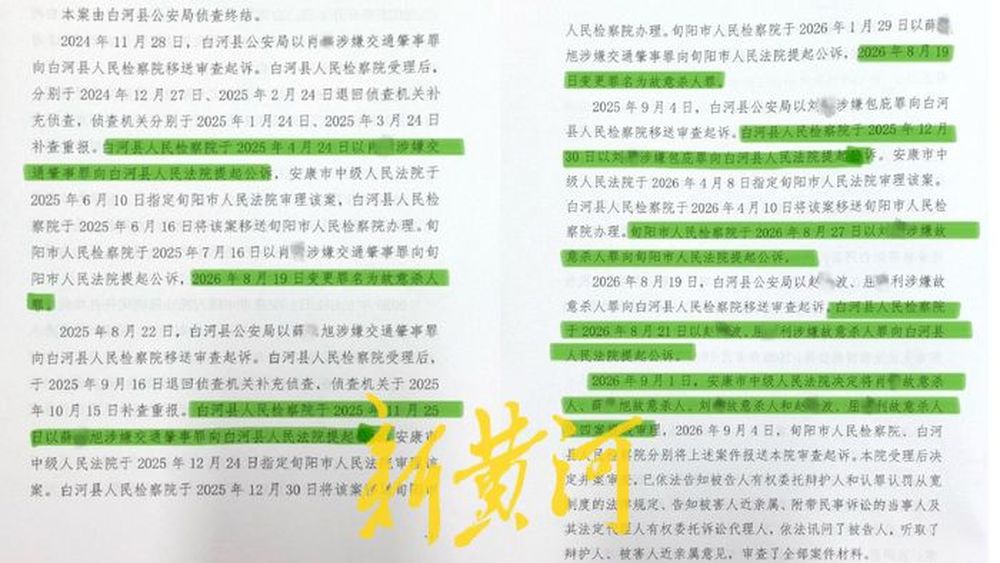 本案由白河县公安局侦查终结。
2024年11月28日，白河县公安局以肖 涉嫌交通肇事罪
向白河县人民检察院移送审查起诉。白河县人民检察院受理后，
分别于2024年12月27日、2025年2月24日退回侦查机关补
充侦查，侦查机关分别于2025年1月24日、2025年3月24日
补查重报。白河县人民检察院于2025年4月24日以肖 涉嫌交
通肇事罪向白河县人民法院提起公诉，安康市中级人民法院于
2025年6月10日指定旬阳市人民法院审理该案，白河县人民检
察院于2025年6月16日将该案移送旬阳市人民检察院办理。旬
阳市人民检察院于2025年7月16日以肖 涉嫌交通肇事罪向旬
阳市人民法院提起公诉，2026年8月19日变更罪名为故意杀人
罪。
2025年8月22日，白河县公安局以薛 旭涉嫌交通肇事罪
向白河县人民检察院移送审查起诉。白河县人民检察院受理后，
于2025年9月16日退回侦查机关补充侦查，侦查机关于2025
年10月15日补查重报。白河县人民检察院于2025年11月25
日以薛 旭涉嫌交通肇事罪向白河县人民法院提起 安康市
中级人民法院于2025年12月24日指定旬阳市人民法院审理该
案。白河县人民检察院于2025年12月30日将该案 旬阳市
人民检察院办理。旬阳市人民检察院于2026年1月29日以薛
旭涉嫌交通肇事罪向旬阳市人民法院提起公诉，2026年8月19
日变更罪名为故意杀人罪。
2025年9月4日，白河县公安局以刘 涉嫌包庇罪向白河
县人民检察院移送审查起诉。白河县人民检察院于2025年12月
30日以刘 涉嫌包庇罪向白河县人民法院提起 诉。安康市中
级人民法院于2026年4月8日指定旬阳市人民法院审理该案。
白河县人民检察院于2026年4月10日将该案移送旬阳市人民检
察院办理。旬阳市人民检察院于2026年8月27日以刘 涉嫌故
意杀人罪向旬阳市人民法院提起公诉。
2026年8月19日，白河县公安局以赵 波、屈 利涉嫌故
意杀人罪向白河县人民检察院移送审查起诉。白河县人民检察院
于2026年8月21日以赵 波、屈 利涉嫌故意杀人罪向白河县
人民法院提起公诉。
2026年9月1日，安康市中级人民法院决定将肖 故意杀
人、薛 旭故意杀人、刘 故意杀人和赵 波、屈 利故意杀人
四案 审理，2026年9月4日，旬阳市人民检察院、白河
县人民检察院分别将上述案件报送本院审查起诉。本院受理后决
定并案审查，已依法告知被告人有权委托辩护人和认罪认罚从宽
制度的法律规定、告知被害人近亲属、附带民事诉讼的当事人及
其法定代理人有权委托诉讼代理人，依法讯问了被告人，听取了
辩护人、被害人近亲属意见，审查了全部案件材料。
新黄河